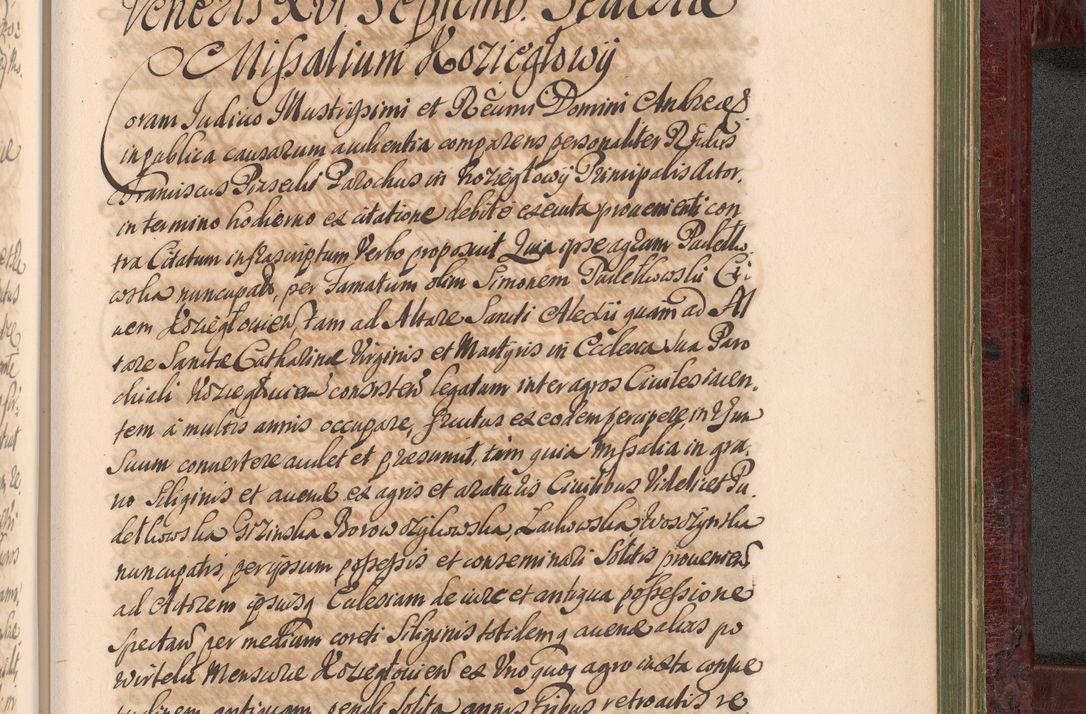 Veneris XVI Septemb.
Missalium Kozieglowÿ
Coram Judicio Illustrissimi et Rẽumi Domini Andreæ S.
in publica causarum audientia comparens personaliter Rñdus
Franciscus Parochus in Kozieglowÿ Principalis Actor,
in termino hodierno ex citatione debite exeuta provenienti con
tra Citatum infrascriptum Verbo proposuit Quia ipse agrum Pudełko
wska nuncupatũ, per Famatum olim Simonem Pudelkowski Ci-
uem Koziegłouień, tam ad Altare Sancti Alexii quam ad Al
tare Sanctæ Catharinæ Virginis et Martyris in Ecclesia sua Paro
chiali Koziegłouień consisteñ legatum inter agros Ciuiles iacen-
tem á multis annis occupare, fructus ex eodem percipere, in Usum
Suum conuertere audet et præsumit, tum quia missalia in gra-
no Siliginis et auenæ ex agris et araturis Ciuilibus Videlicet Pu-
delkowska Grzinska Borowozykowska, Lachowska
nuncupatis, per ipsum possessis et conseminari Solitis proueñien
ad Actorem ipsiusq Ecclesiam de iure et antiqua possessione
spectañ per medium coreti Siliginis totidemq auenæ alias po
wirtelu Mensuræ Koziegłouień ex Vnoquoq agro iuxta consue
tudinem antiquam pendi Solita annis tribus retroactis re